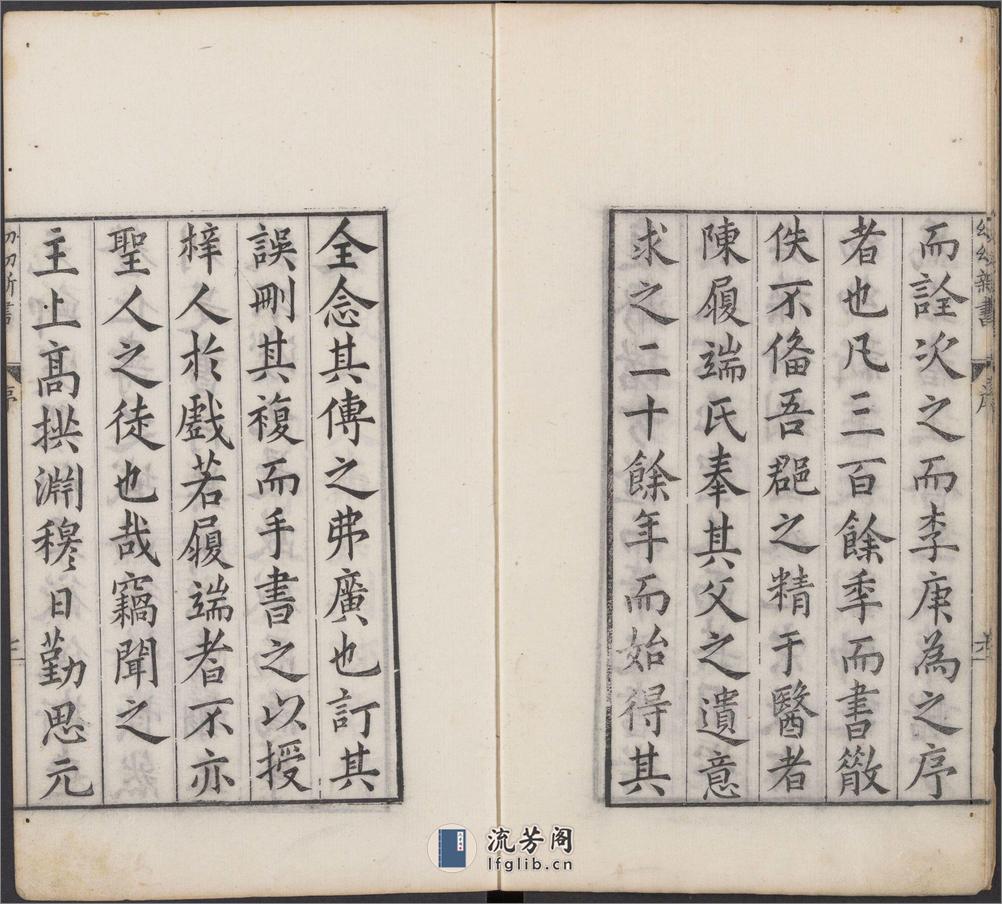 幼幼新書
序
而詮次之而李庚為之序
者也凡三百餘秊而書散
佚不俻吾郡之精于醫者
陳履端氏奉其父之遺意
求之二十餘年而始得其
全念其傳之弗廣也訂其
誤刪其複而手書之以授
梓人於戲若履端者不亦
聖人之徒也哉竊聞之
主上高拱淵穆日勤思元
幼幼新書
序
三
流芳阁
lfglib.cn